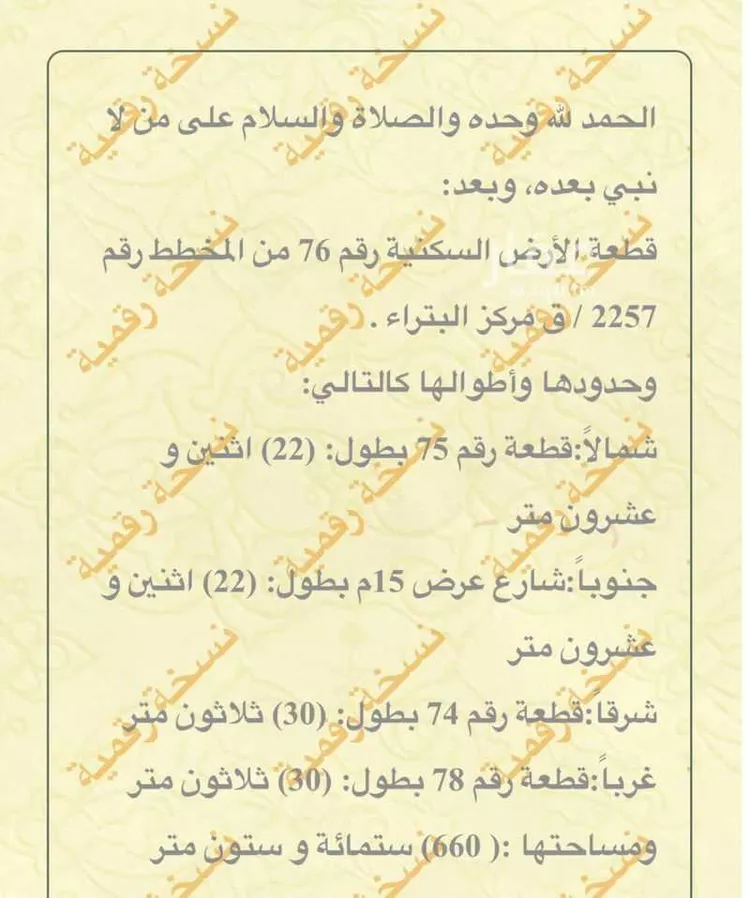 الحمد لله وحده والصلاة والسلام على من لا
نبي بعده، وبعد:
قطعة الأرض السكنية رقم 76 من المخطط رقم
2257 / ق مركز البتراء .
وحدودها وأطوالها كالتالي:
شمالاً:قطعة رقم 75 بطول: (22) اثنين و
عشرون متر
جنوباً:شارع عرض 15م بطول: (22) اثنين و
عشرون متر
شرقاً:قطعة رقم 74 بطول: (30) ثلاثون متر
غرباً:قطعة رقم 78 بطول: (30) ثلاثون متر
ومساحتها :( 660) ستمائة و ستون متر
نسخة رقمية